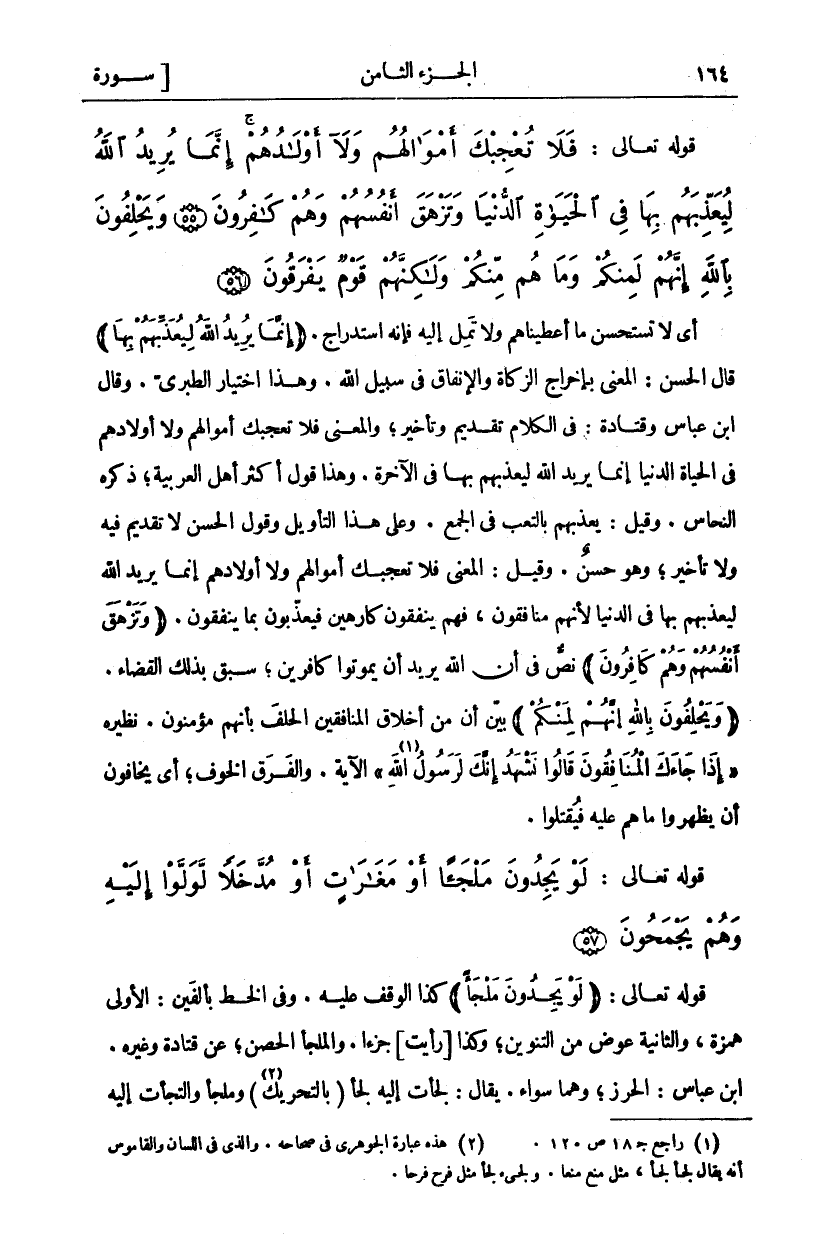 ١٦٤ الجزء الثامن [ سورة
قوله تعالى : فَلَا تُعْجِبْكَ أَمْوَٰلُهُمْ وَلَآ أَوْلَٰدُهُمْ ۚ إِنَّمَا يُرِيدُ ٱللَّهُ
لِيُعَذِّبَهُم بِهَا فِى ٱلْحَيَوٰةِ ٱلدُّنْيَا وَتَزْهَقَ أَنفُسُهُمْ وَهُمْ كَٰفِرُونَ ﴿٥٥﴾ وَيَحْلِفُونَ
بِٱللَّهِ إِنَّهُمْ لَمِنكُمْ وَمَا هُم مِّنكُمْ وَلَٰكِنَّهُمْ قَوْمٌ يَفْرَقُونَ ﴿٥٦﴾
أى لا تستحسن ما أعطيناهم ولا تَمِل إليه فإنه استدراج . ﴿ إِنَّمَا يُرِيدُ اللَّهُ لِيُعَذِّبَهُمْ بِهَا ﴾
قال الحسن : المعنى بإخراج الزكاة والإنفاق فى سبيل الله . وهذا اختيار الطبرىّ . وقال
ابن عباس وقتادة : فى الكلام تقديم وتأخير ؛ والمعنى فلا تعجبك أموالهم ولا أولادهم
فى الحياة الدنيا إنما يريد الله ليعذبهم بها فى الآخرة . وهذا قول أكثر أهل العربية ؛ ذكره
النحاس . وقيل : يعذبهم بالتعب فى الجمع . وعلى هذا التأويل وقول الحسن لا تقديم فيه
ولا تأخير ؛ وهو حسنٌ . وقيل : المعنى فلا تعجبك أموالهم ولا أولادهم إنما يريد الله
ليعذبهم بها فى الدنيا لأنهم منافقون ، فهم ينفقون كارهين فيعذّبون بما ينفقون . ﴿ وَتَزْهَقَ
أَنْفُسُهُمْ وَهُمْ كَافِرُونَ ﴾ نصٌّ فى أن الله يريد أن يموتوا كافرين ؛ سبق بذلك القضاء .
﴿ وَيَحْلِفُونَ بِاللَّهِ إِنَّهُمْ لَمِنْكُمْ ﴾ بيّن أن من أخلاق المنافقين الحلفَ بأنهم مؤمنون . نظيره
« إِذَا جَاءَكَ الْمُنَافِقُونَ قَالُوا نَشْهَدُ إِنَّكَ لَرَسُولُ اللَّهِ(١) » الآية . والفَرَق الخوف ؛ أى يخافون
أن يظهروا ما هم عليه فيُقتلوا .
قوله تعالى : لَوْ يَجِدُونَ مَلْجَـًٔا أَوْ مَغَٰرَٰتٍ أَوْ مُدَّخَلًا لَّوَلَّوْا إِلَيْهِ
وَهُمْ يَجْمَحُونَ ﴿٥٧﴾
قوله تعالى : ﴿ لَوْ يَجِدُونَ مَلْجَأً ﴾ كذا الوقف عليه . وفى الخط بألفَين : الأولى
همزة ، والثانية عوض من التنوين ؛ وكذا [رأيت] جزءا . والملجأ الحصن ؛ عن قتادة وغيره .
ابن عباس : الحرز ؛ وهما سواء . يقال : لجأت إليه لجأ ( بالتحريك(٢) ) وملجأ والتجأت إليه
(١) راجع جـ ١٨ ص ١٢٠ . (٢) هذه عبارة الجوهرى فى صحاحه . والذى فى اللسان والقاموس
أنه يقال لجأ لجأ ، مثل منع منعا . ولجىء لجأ مثل فرح فرحا .